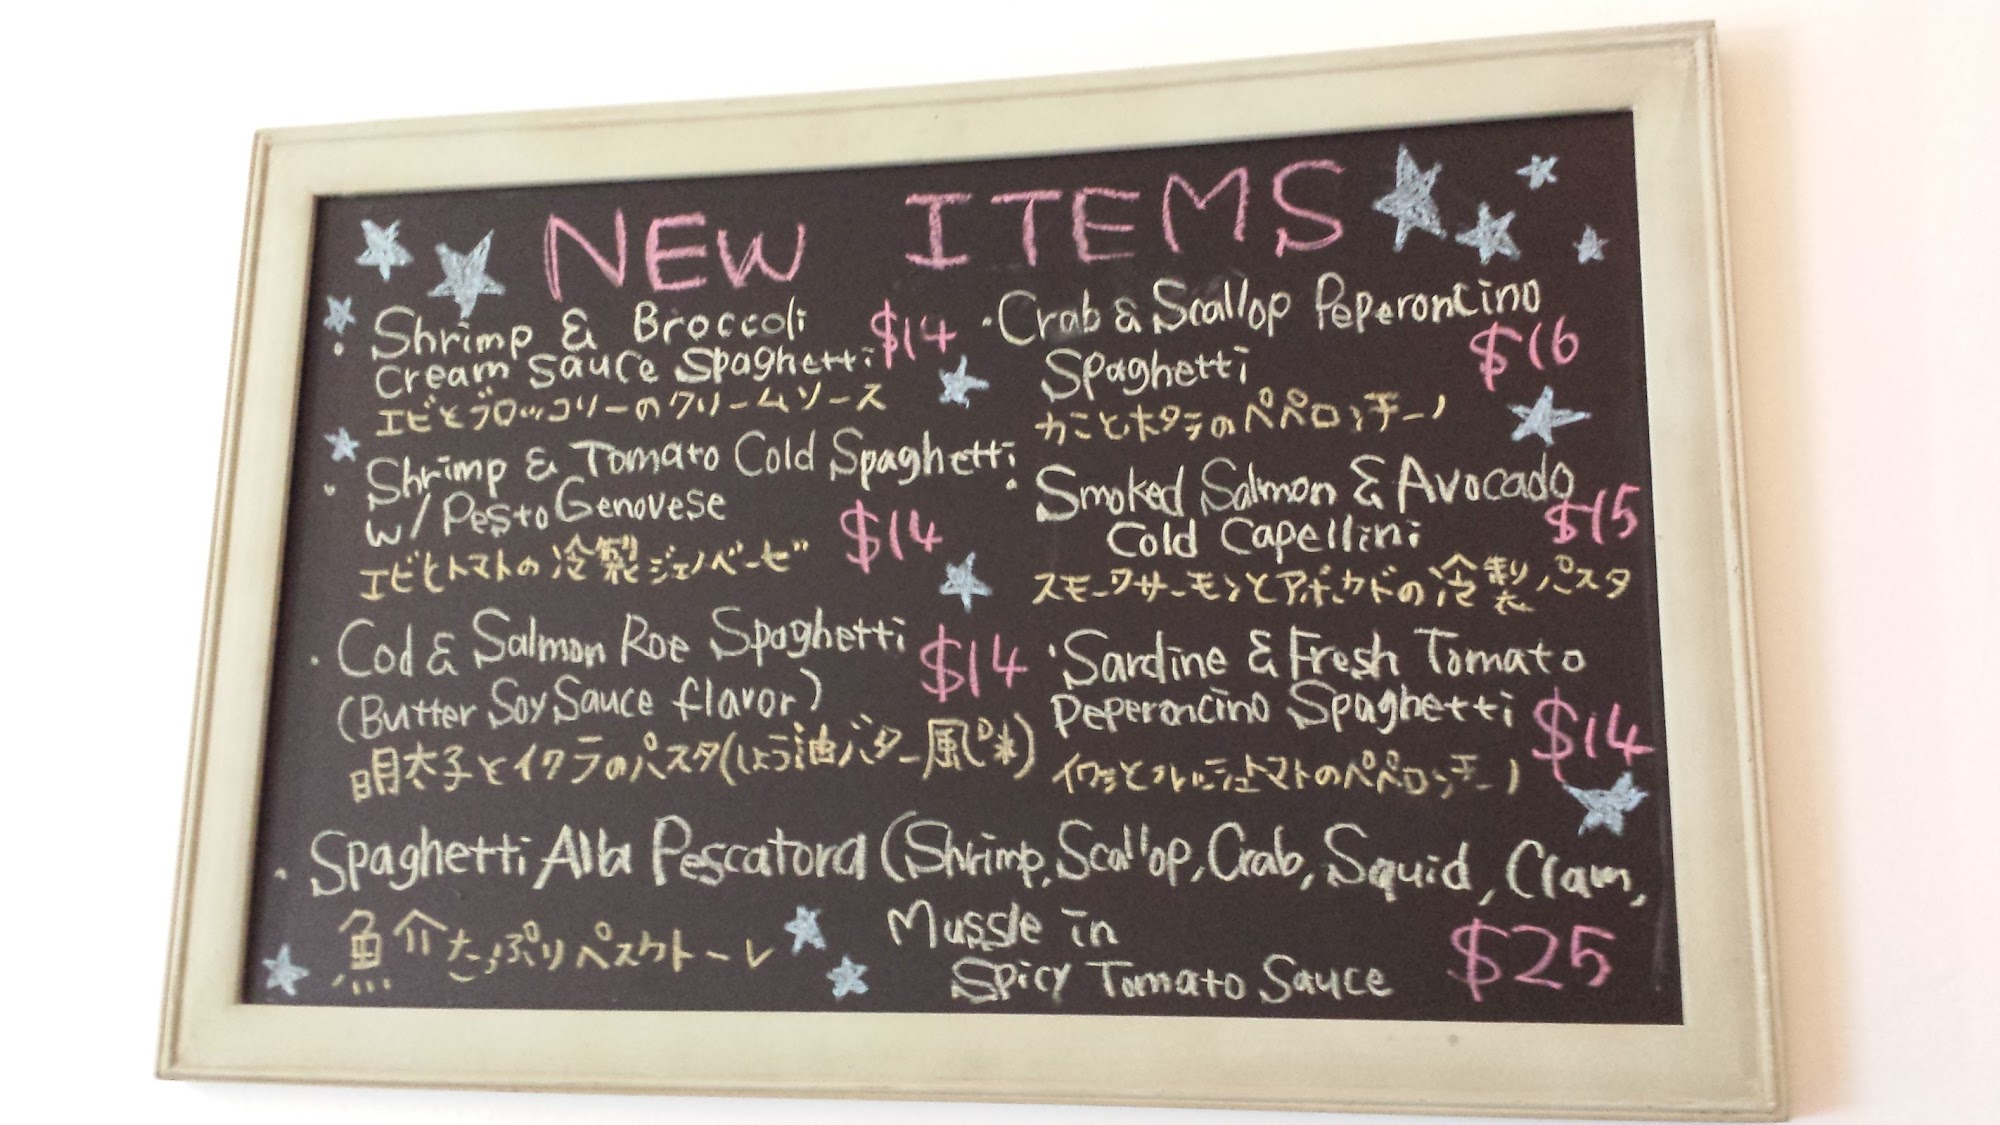 NEW ITEMS
• Shrimp & Broccoli
Cream Sauce Spaghetti $14
エビとブロッコリーのクリームソース
• Shrimp & Tomato Cold Spaghetti
w/ Pesto Genovese $14
エビとトマトの冷製ジェノベーゼ
• Cod & Salmon Roe Spaghetti $14
(Butter Soy Sauce flavor)
明太子とイクラのパスタ(しょう油バター風味)
• Crab & Scallop Peperoncino
Spaghetti $16
カニとホタテのペペロンチーノ
• Smoked Salmon & Avocado
Cold Capellini $15
スモークサーモンとアボカドの冷製パスタ
• Sardine & Fresh Tomato
Peperoncino Spaghetti $14
イワシとフレッシュトマトのペペロンチーノ
• Spaghetti Alla Pescatora (Shrimp, Scallop, Crab, Squid, Clam,
Mussle in
Spicy Tomato Sauce $25
魚介たっぷりペスカトーレ